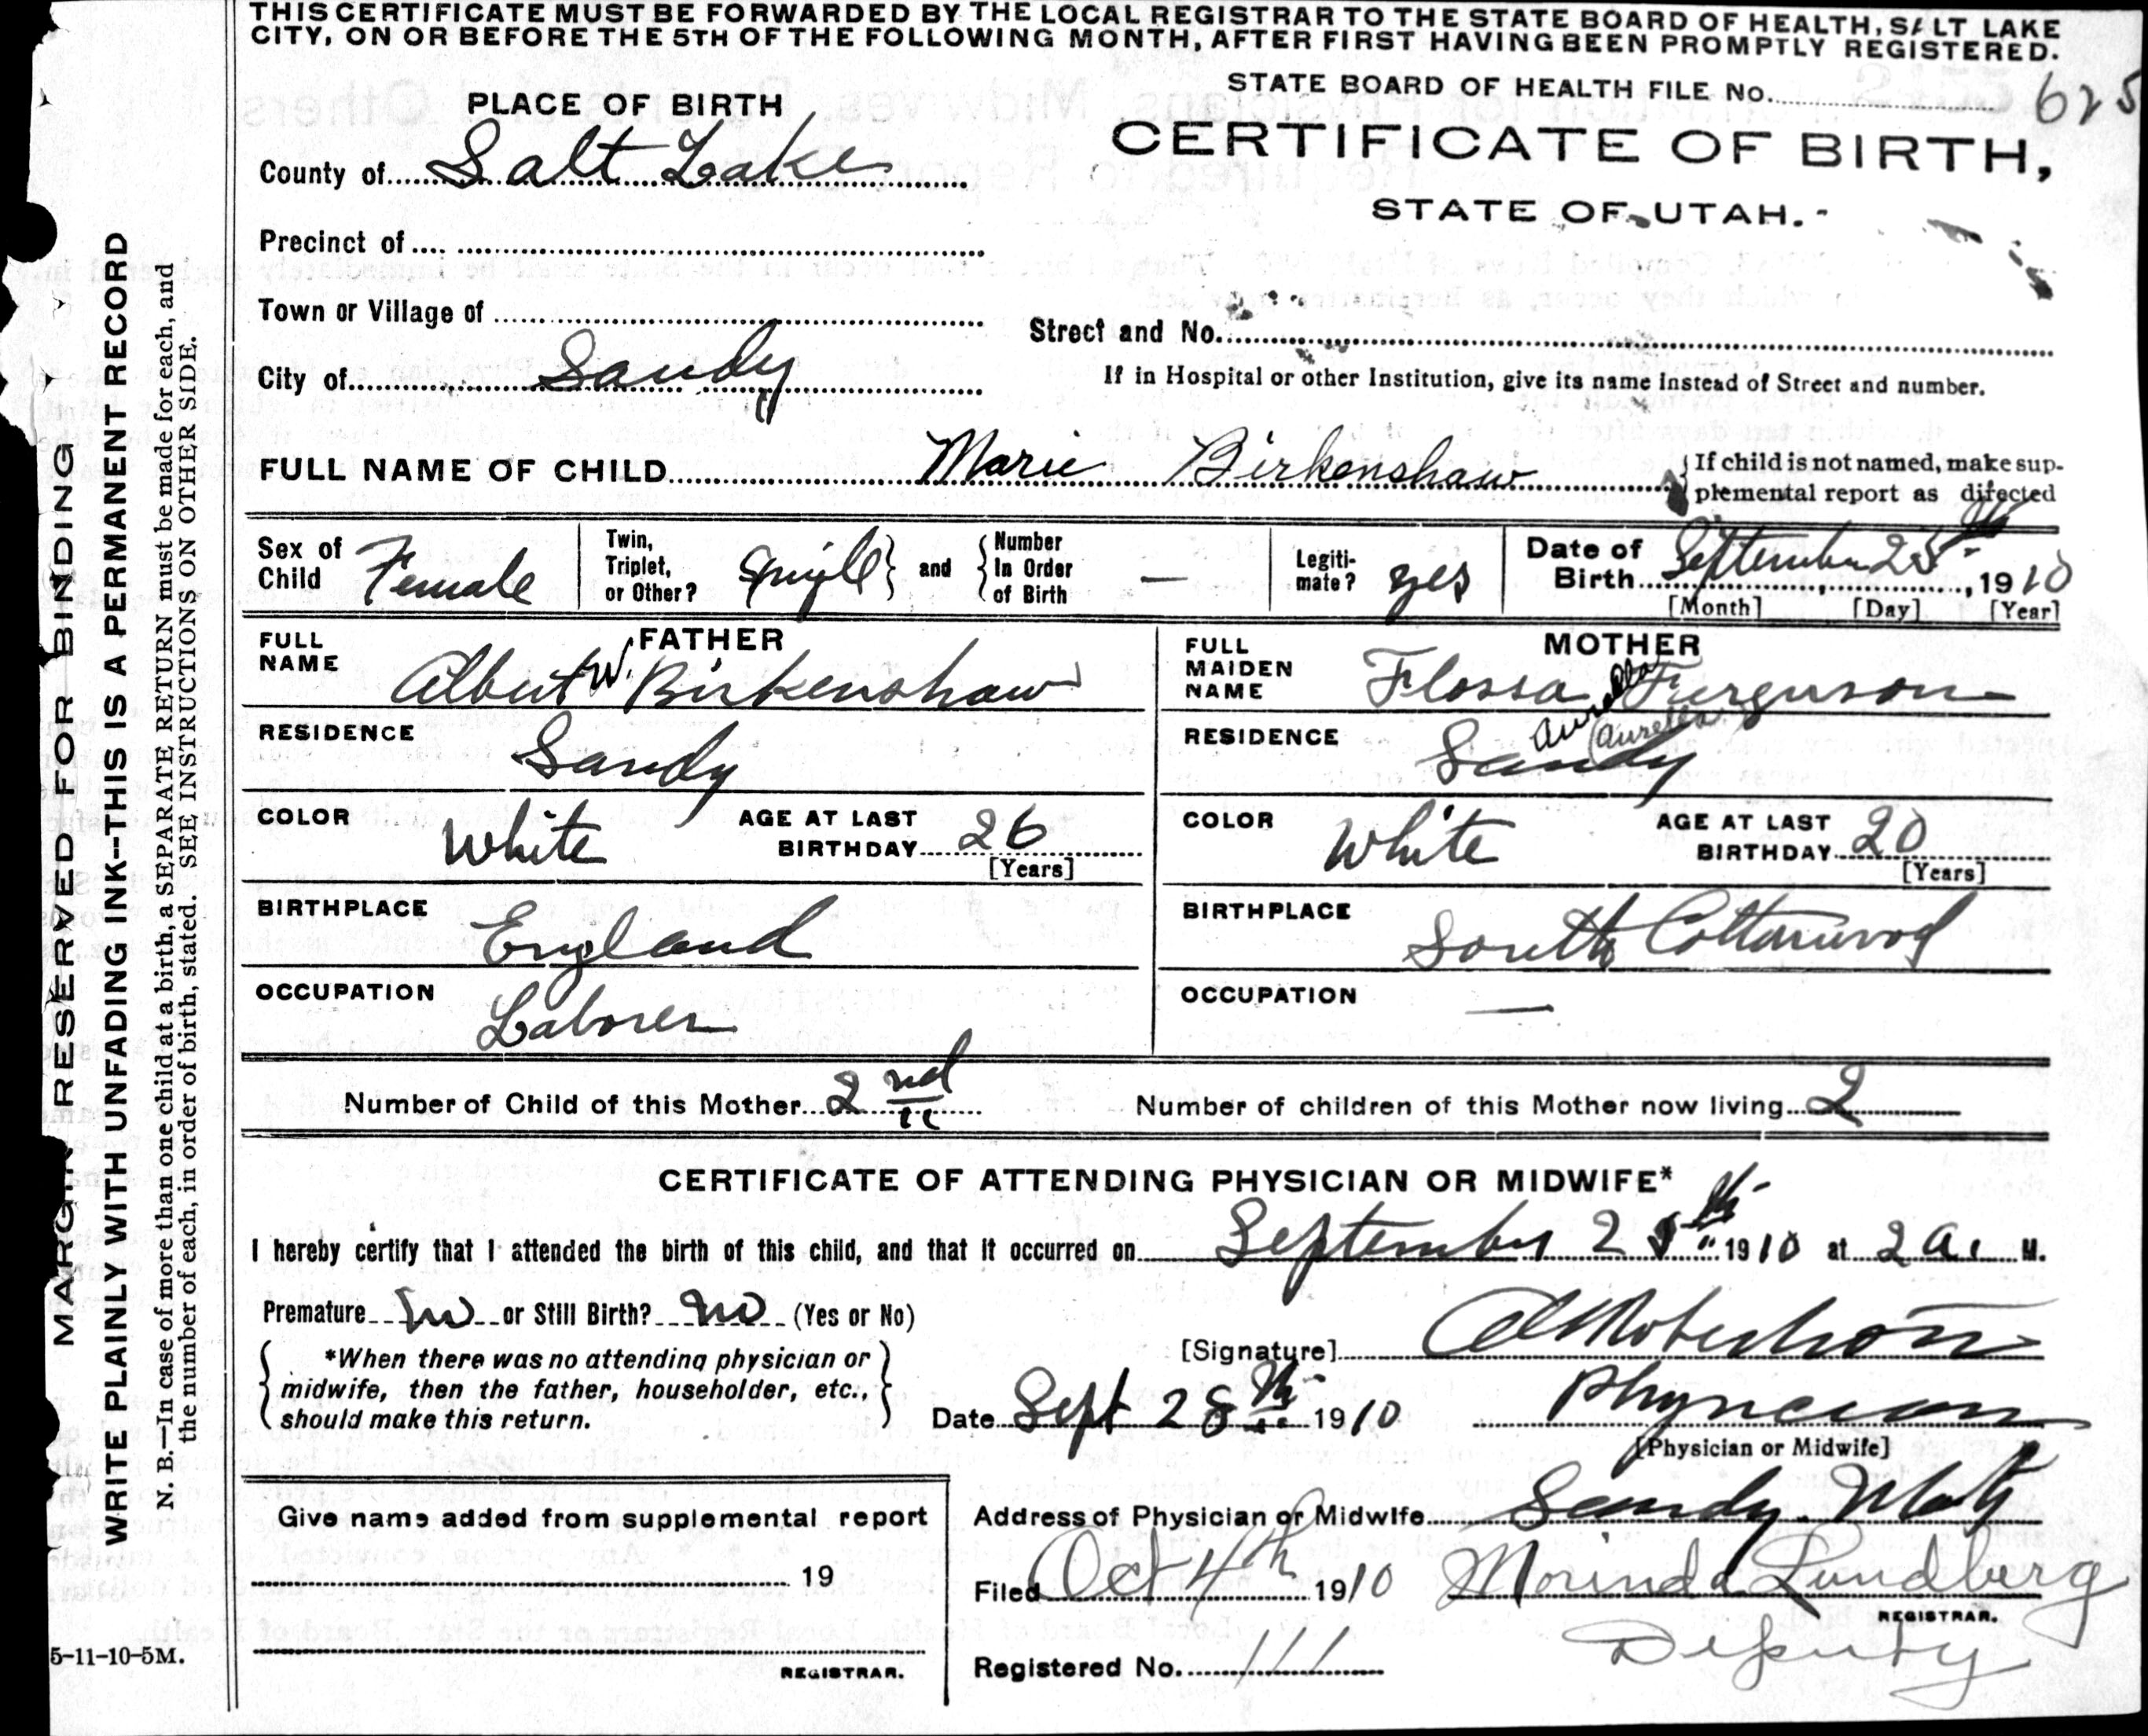 THIS CERTIFICATE MUST BE FORWARDED BY THE LOCAL REGISTRAR TO THE STATE BOARD OF HEALTH, SALT LAKE
CITY, ON OR BEFORE THE 5TH OF THE FOLLOWING MONTH, AFTER FIRST HAVING BEEN PROMPTLY REGISTERED.
STATE BOARD OF HEALTH FILE No. 625
PLACE OF BIRTH
CERTIFICATE OF BIRTH,
STATE OF UTAH.
County of Salt Lake
Precinct of
Town or Village of
Street and No.
City of Sandy
If in Hospital or other Institution, give its name instead of Street and number.
FULL NAME OF CHILD Marie Birkenshaw
If child is not named, make sup-
plemental report as directed
Sex of Child Female
Twin, Triplet, or Other? Single and Number In Order of Birth —
Legiti-mate? yes
Date of Birth September 25th, 1910
[Month] [Day] [Year]
FATHER
FULL NAME Albert W. Birkenshaw
RESIDENCE Sandy
COLOR White AGE AT LAST BIRTHDAY 26
[Years]
BIRTHPLACE England
OCCUPATION Laborer
MOTHER
FULL MAIDEN NAME Flossa Aurella Ferguson
(Aurella)
RESIDENCE Sandy
COLOR White AGE AT LAST BIRTHDAY 20
[Years]
BIRTHPLACE South Cottonwood
OCCUPATION —
Number of Child of this Mother 2nd
Number of children of this Mother now living 2
CERTIFICATE OF ATTENDING PHYSICIAN OR MIDWIFE*
I hereby certify that I attended the birth of this child, and that it occurred on September 2 th 1910 at 2 a. M.
Premature No or Still Birth? No (Yes or No)
*When there was no attending physician or
midwife, then the father, householder, etc.,
should make this return.
[Signature] Robertson
Date Sept 28th 1910 Physician
[Physician or Midwife]
Address of Physician or Midwife Sandy Utah
Filed Oct 4th 1910 Morinda Lundberg
REGISTRAR.
Deputy
Registered No. 111
Give name added from supplemental report
19
REGISTRAR.
5-11-10-5M.
MARGIN RESERVED FOR BINDING
WRITE PLAINLY WITH UNFADING INK--THIS IS A PERMANENT RECORD
N. B.—In case of more than one child at a birth, a SEPARATE RETURN must be made for each, and
the number of each, in order of birth, stated. SEE INSTRUCTIONS ON OTHER SIDE.